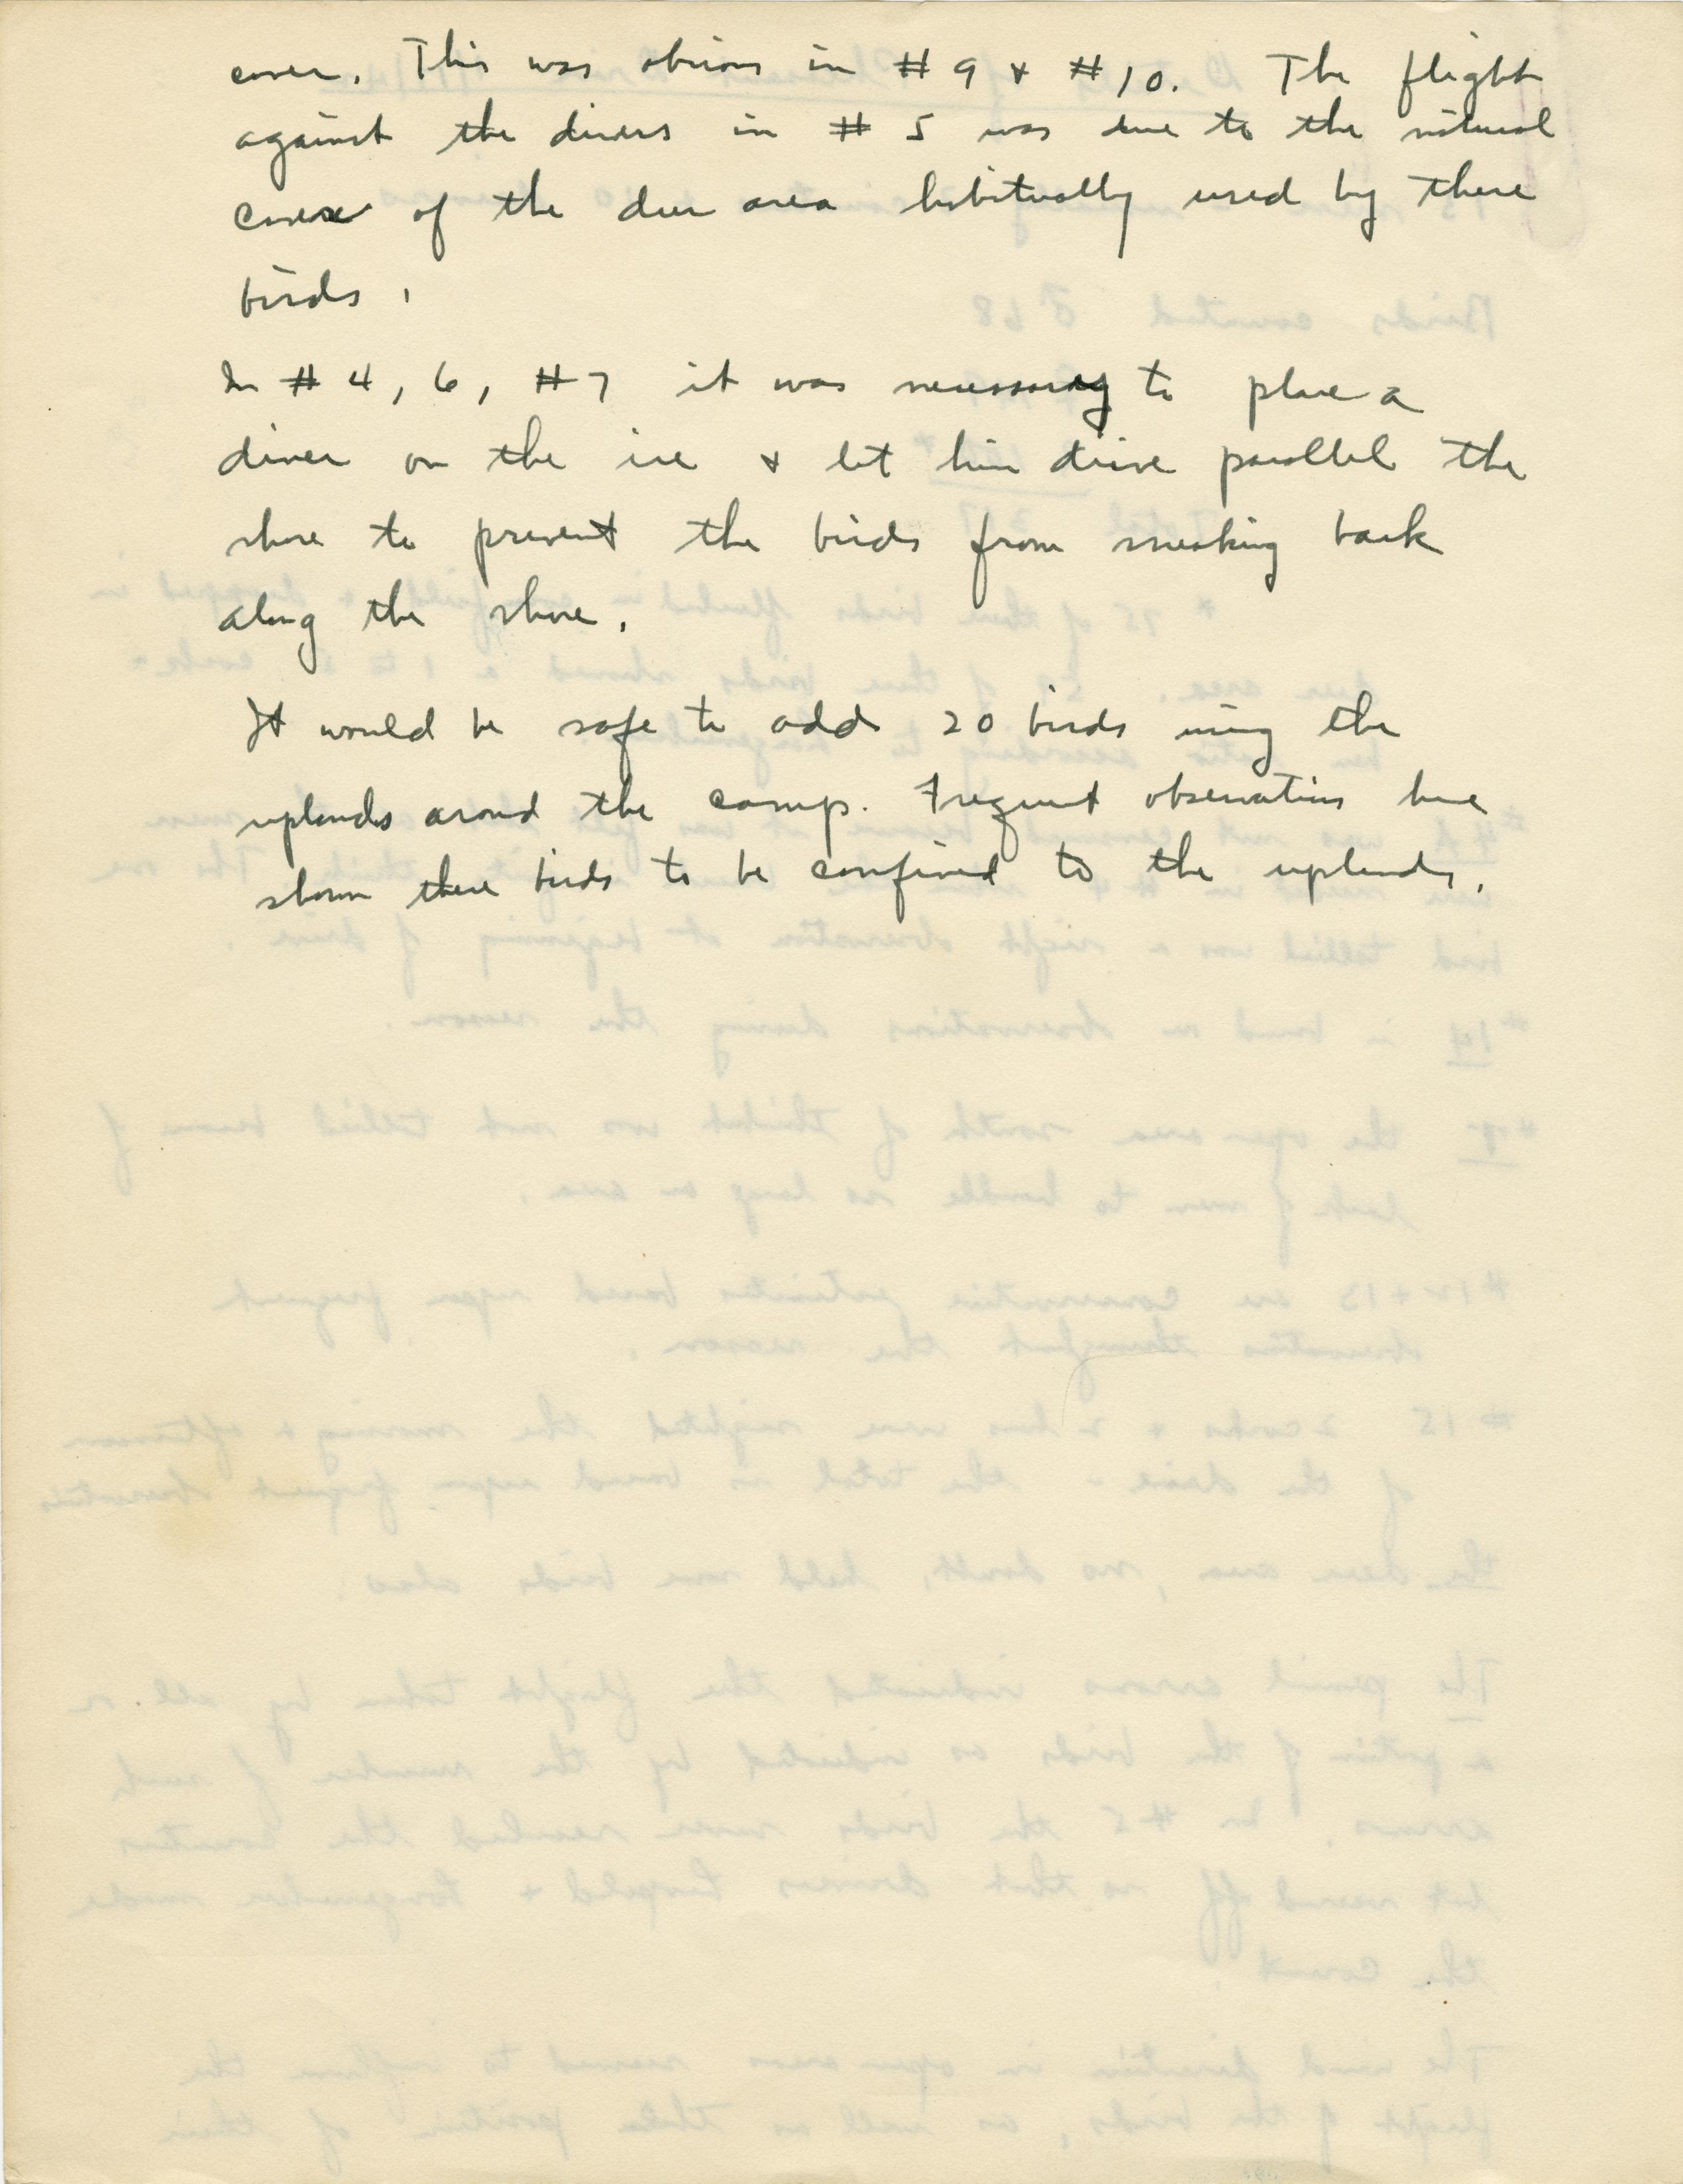 cover. This was obvious in # 9 & # 10. The flight
against the drivers in # 5 was due to the natural
cover of the deer area habitually used by these
birds.
In # 4, 6, # 7 it was necessary to place a
driver on the ice & let him drive parallel the
shore to prevent the birds from sneaking back
along the shore.
It would be safe to add 20 birds using the
uplands around the camp. Frequent observations have
shown these birds to be confined to the uplands.